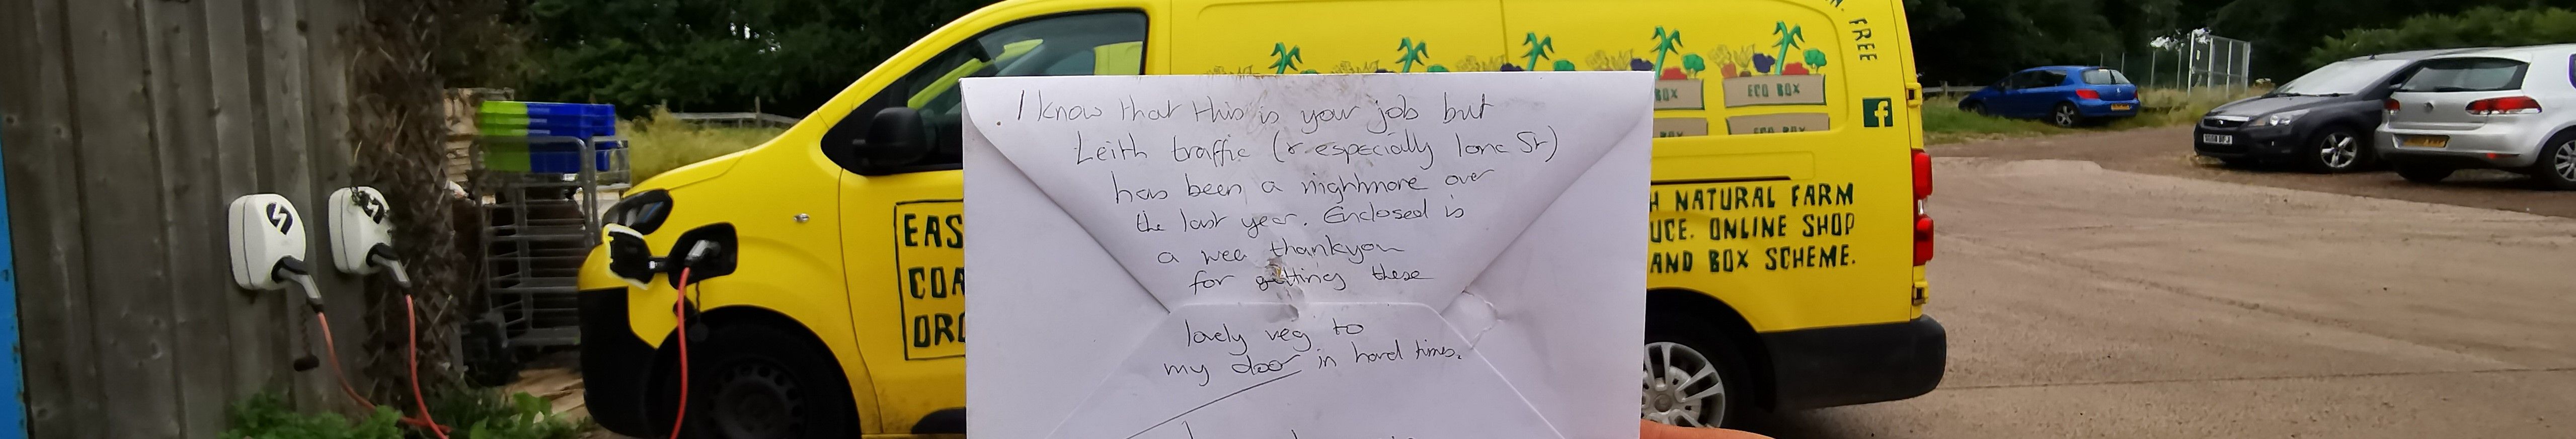 I know that this is your job but
Leith traffic (& especially lane St)
has been a nightmare over
the last year. Enclosed is
a wee thankyou
for getting these
lovely veg to
my door in hard times.
EAS
COA
ORG
FREE
ECO BOX
BOX
BOX
ECO BOX
H NATURAL FARM
UCE. ONLINE SHOP
AND BOX SCHEME.
f